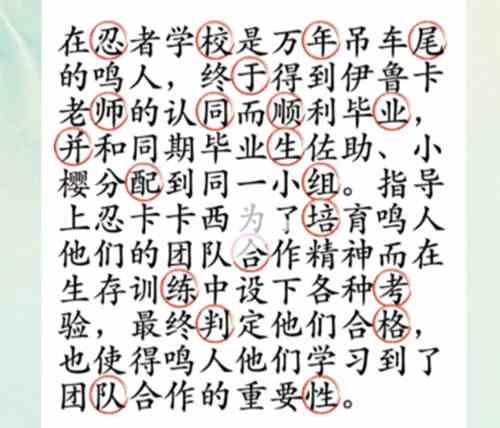 在忍者学校是万年吊车尾
的鸣人，终于得到伊鲁卡
老师的认同而顺利毕业，
并和同期毕业生佐助、小
樱分配到同一小组。指导
上忍卡卡西为了培育鸣人
他们的团队合作精神而在
生存训练中设下各种考
验，最终判定他们合格，
也使得鸣人他们学习到了
团队合作的重要性。